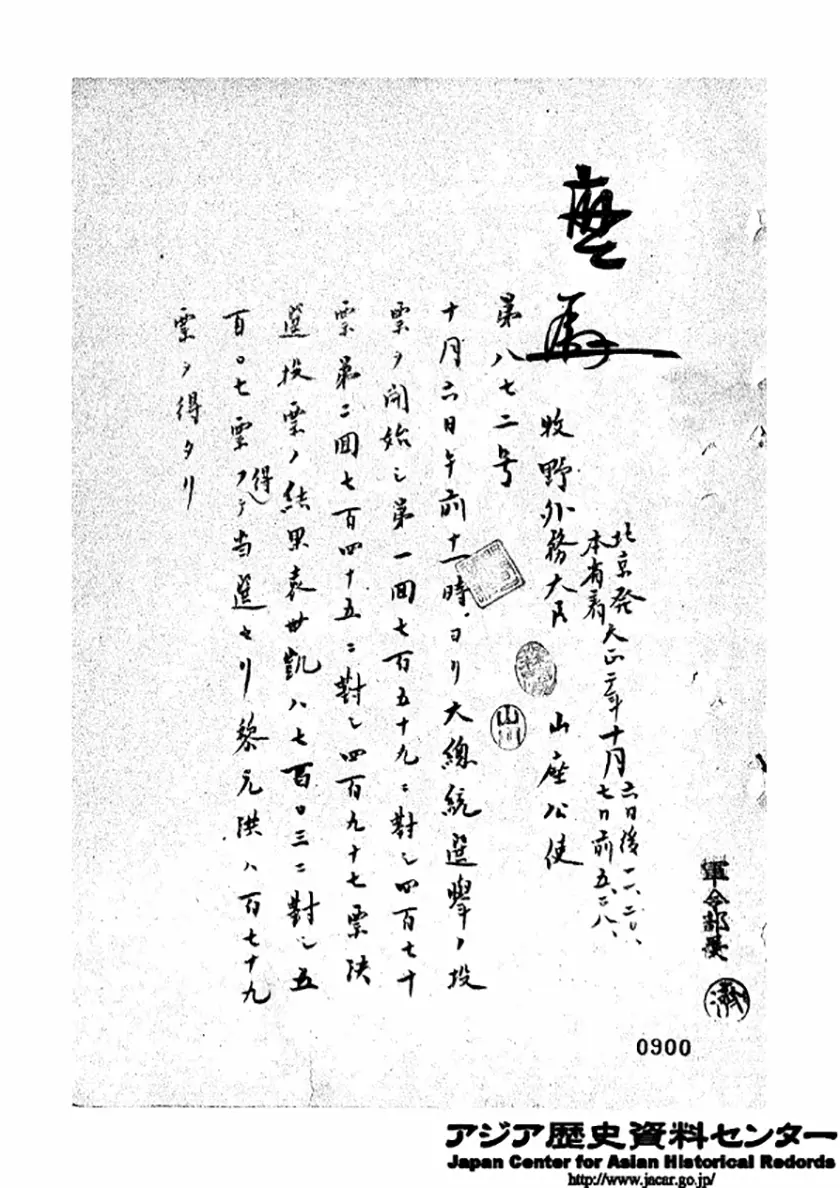 北京発
本省着
大正二年十月
六日後一一、二〇、
七日前五、二八、
牧野外務大臣
山座公使
第八七二号
十月六日午前十一時ヨリ大總統選擧ノ投
票ヲ開始シ第一回七百五十九ニ對シ四百七十
票第二回七百四十五ニ對シ四百九十七票決
選投票ノ結果袁世凱ハ七百〇三ニ對シ五
百〇七票ヲ得テ当選セリ黎元洪ハ百七十九
票ヲ得タリ
軍令部長
済
山川
0900
アジア歴史資料センター
Japan Center for Asian Historical Redords
http://www.jacar.go.jp/